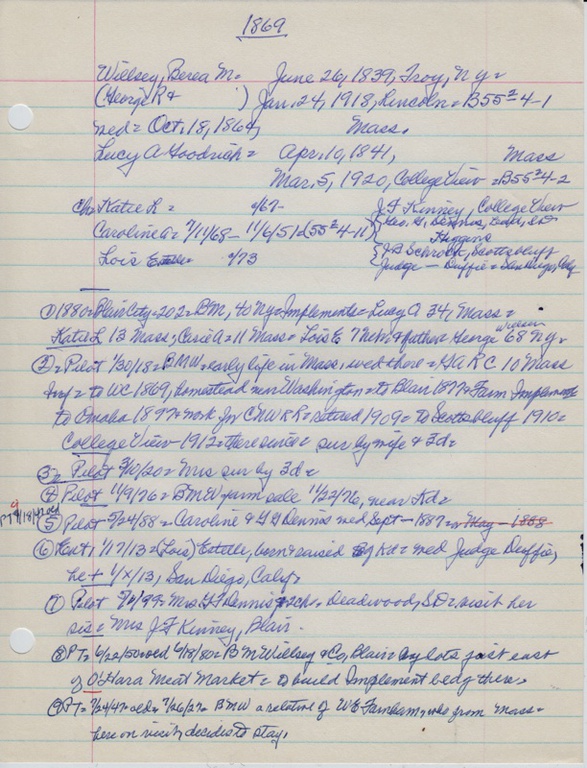 1869
Willsey, Berea M = June 26, 1839, Troy, N y =
(George R + ) Jan. 24, 1918, Lincoln = B55 2 4-1
wed = Oct. 18, 1864, Mass.
Lucy A Goodrich = Apr. 10, 1841, Mass
Mar. 5, 1920, College View = B55 2 4-2
Ch = Katie L = /67- J F Kinney, College View
Caroline A = 7/11/68 - 11/6/51 d 55 2 4-11 Geo. G. Dennis,
Lois Estelle = /73 J B Schrock, Scottsbluff
Judge — Duffie = San Diego, Calif
① 1880 = Blair City = 202 = B M, 40 Ny = Implements = Lucy A 34, Mass =
Katie L 13 Mass; Carie A = 11 Mass = Lois E 7 Neb; + father = George Willsey 68 Ny.
② = Pilot 1/30/18 = B M W = early life in Mass, wed there = GAR C 10 Mass
Inf = to WC 1869, homestead near Washington = to Blair 1877 = Farm Implements
to Omaha 1897 = work for CNWRR = retired 1909 = to Scottsbluff 1910 =
College View - 1912 = there since = sur by wife & 3d =
③ = Pilot 3/10/20 = Mrs sur by 3d =
④ Pilot 11/9/76 = B M W farm sale 11/22/76, near Kd =
⑤ Pilot 5/24/88 = Caroline & G G Dennis wed Sept - 1887 = May - 1888
⑥ Ent, 1/17/13 = (Lois) Estelle, born & raised Kd = wed Judge Duffie,
he + 1/x/13, San Diego, Calif =
⑦ Pilot = Mrs G G Dennis + 2ch = Deadwood, SD = visit her
sis = Mrs J F Kinney, Blair.
⑧ PT = 6/22/50 = old 6/18/80 = B M Willsey & Co, Blair = buy lots just east
of O'Hara Meat Market = to build Implement bldg there.
⑨ PT = 7/24/47 = old = 7/26/27 = B M W a relative of W E Farnham, who from Mass =
here on visit, decides to stay.